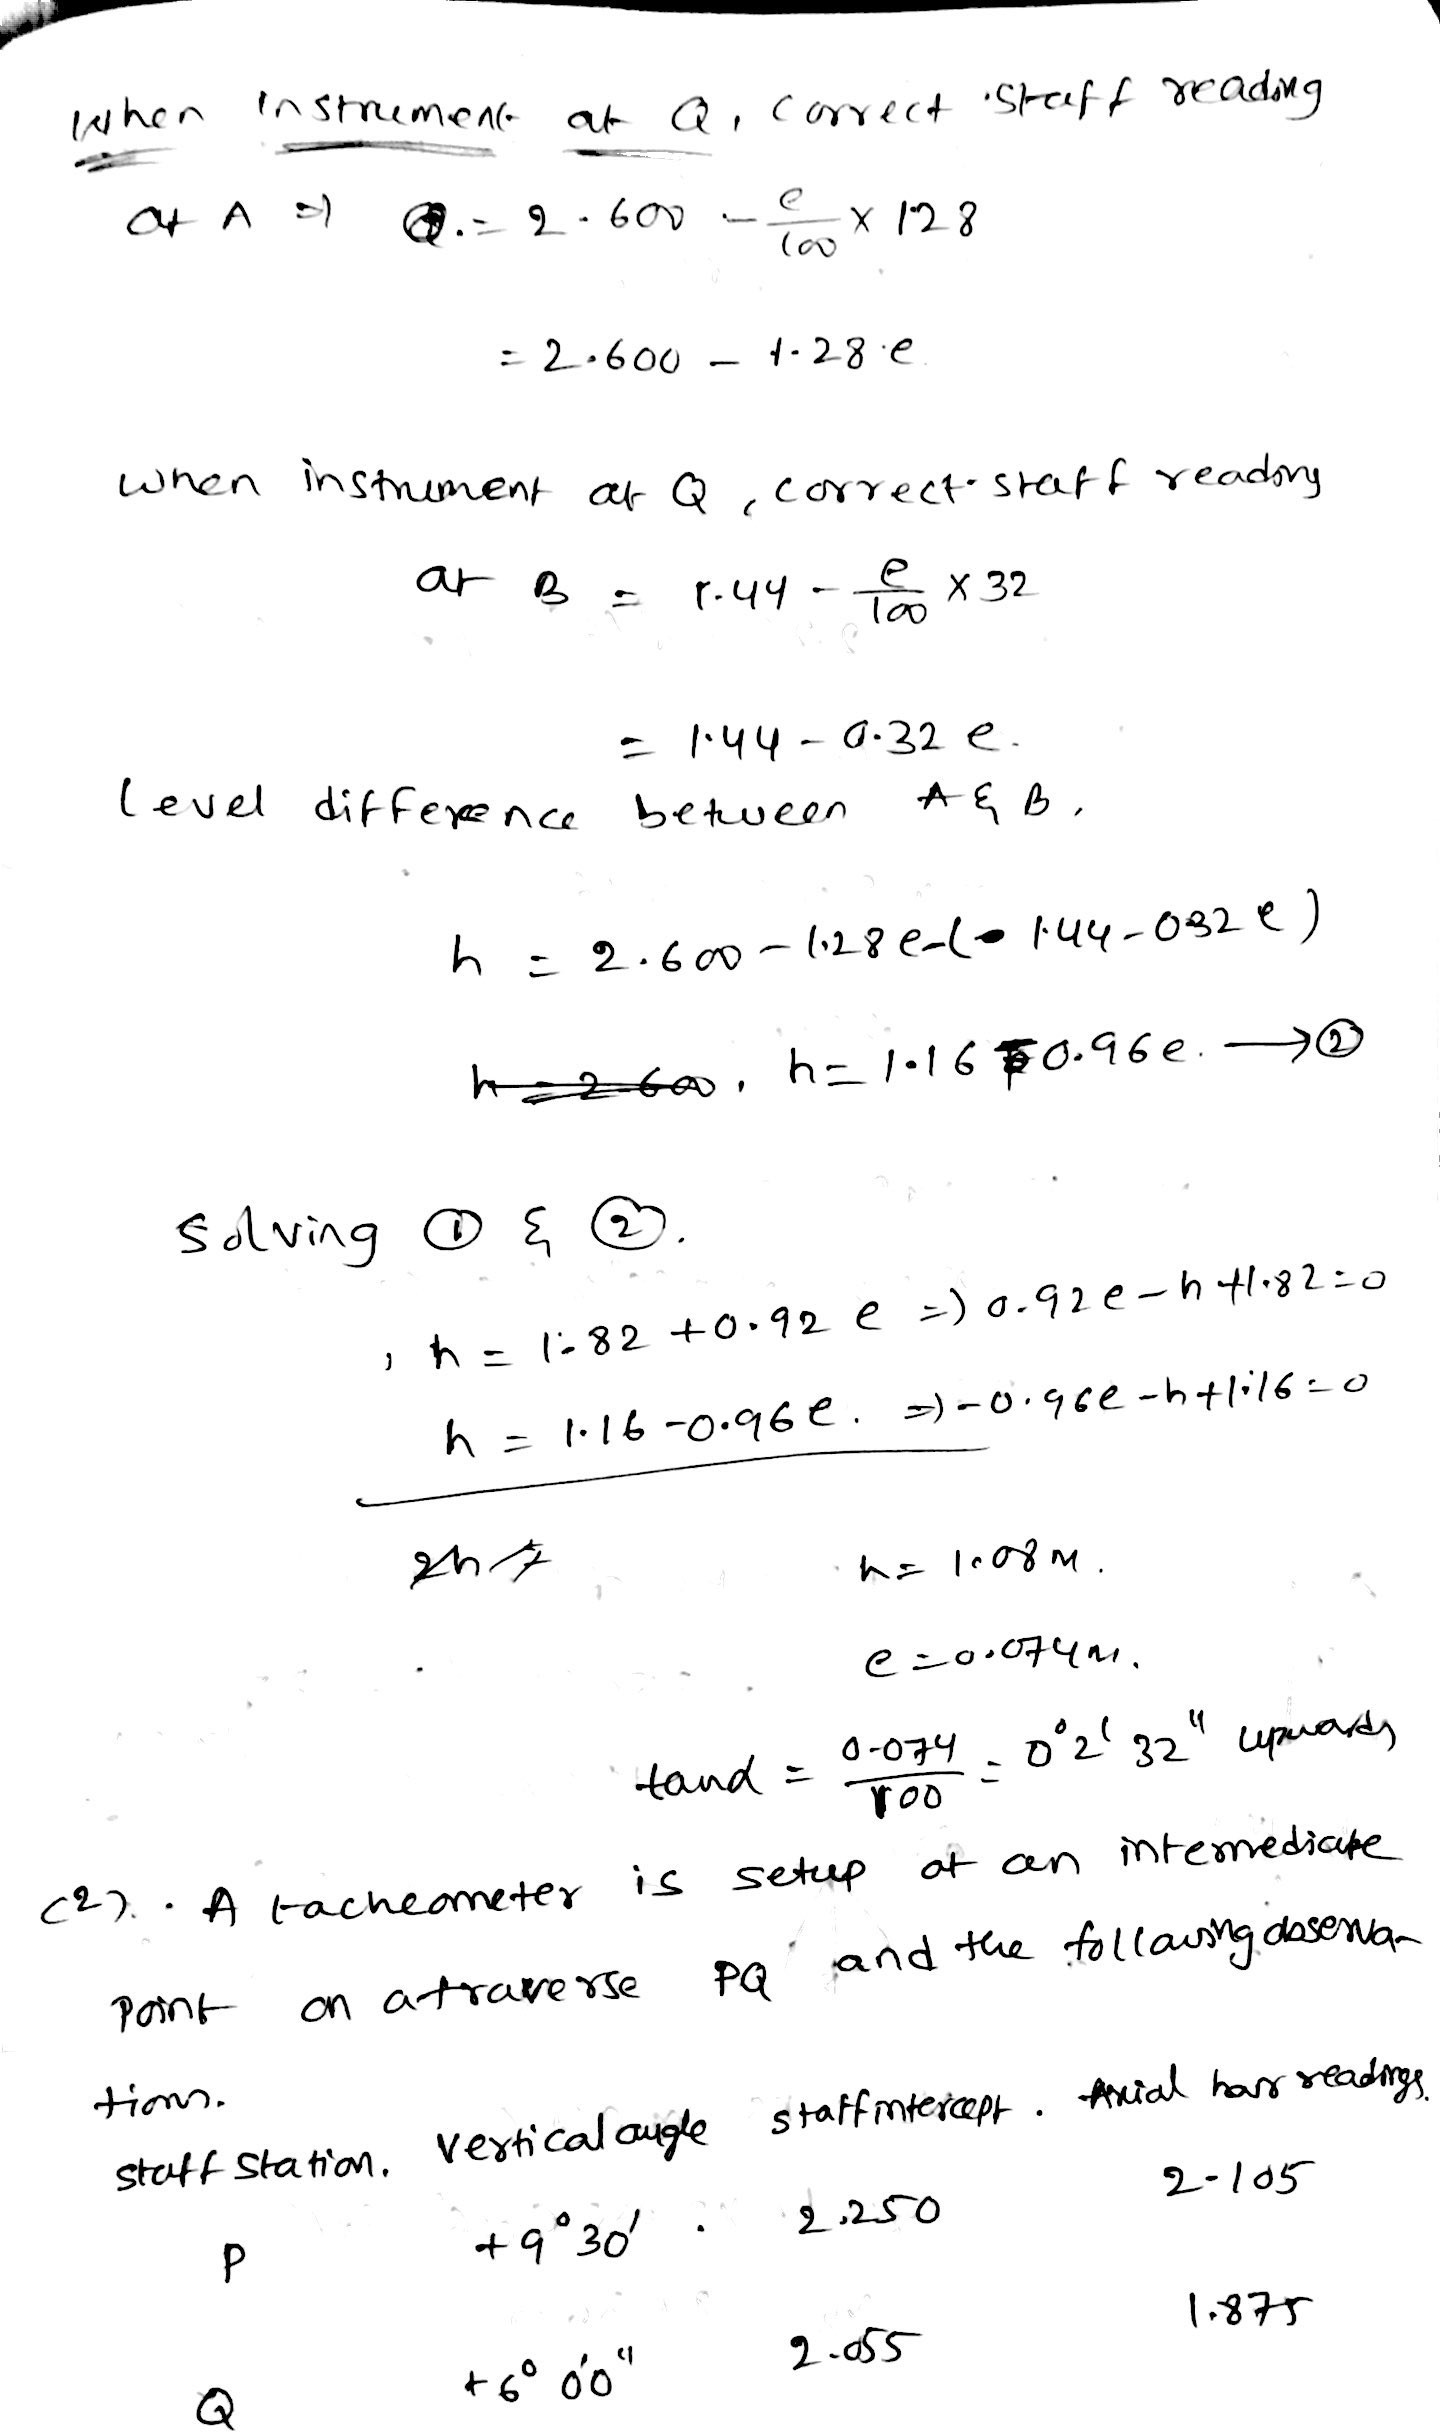 When instrument at Q, correct staff reading
at A ⇒ Q. = 2.600 - e/100 × 128
= 2.600 - 1.28 e
when instrument at Q, correct staff reading
at B = 1.44 - e/100 × 32
= 1.44 - 0.32 e.
level difference between A & B,
h = 2.600 - 1.28 e - ( 1.44 - 032 e )
h = 2.600, h = 1.16 - 0.96e. → ②
solving ① & ②.
, h = 1.82 + 0.92 e ⇒ 0.92 e - h + 1.82 = 0
h = 1.16 - 0.96 e. ⇒ - 0.96e - h + 1.16 = 0
2h h = 1.08 m.
e = 0.074 m.
tanα = 0.074/100 = 0° 2' 32" upwards
(2). A tacheometer is setup at an intermediate
point on a traverse PQ and the following observa-
tions.
staff station. Vertical angle staff intercept. Axial hair readings.
P +9° 30' 2.250 2.105
Q +6° 0'0" 2.055 1.875